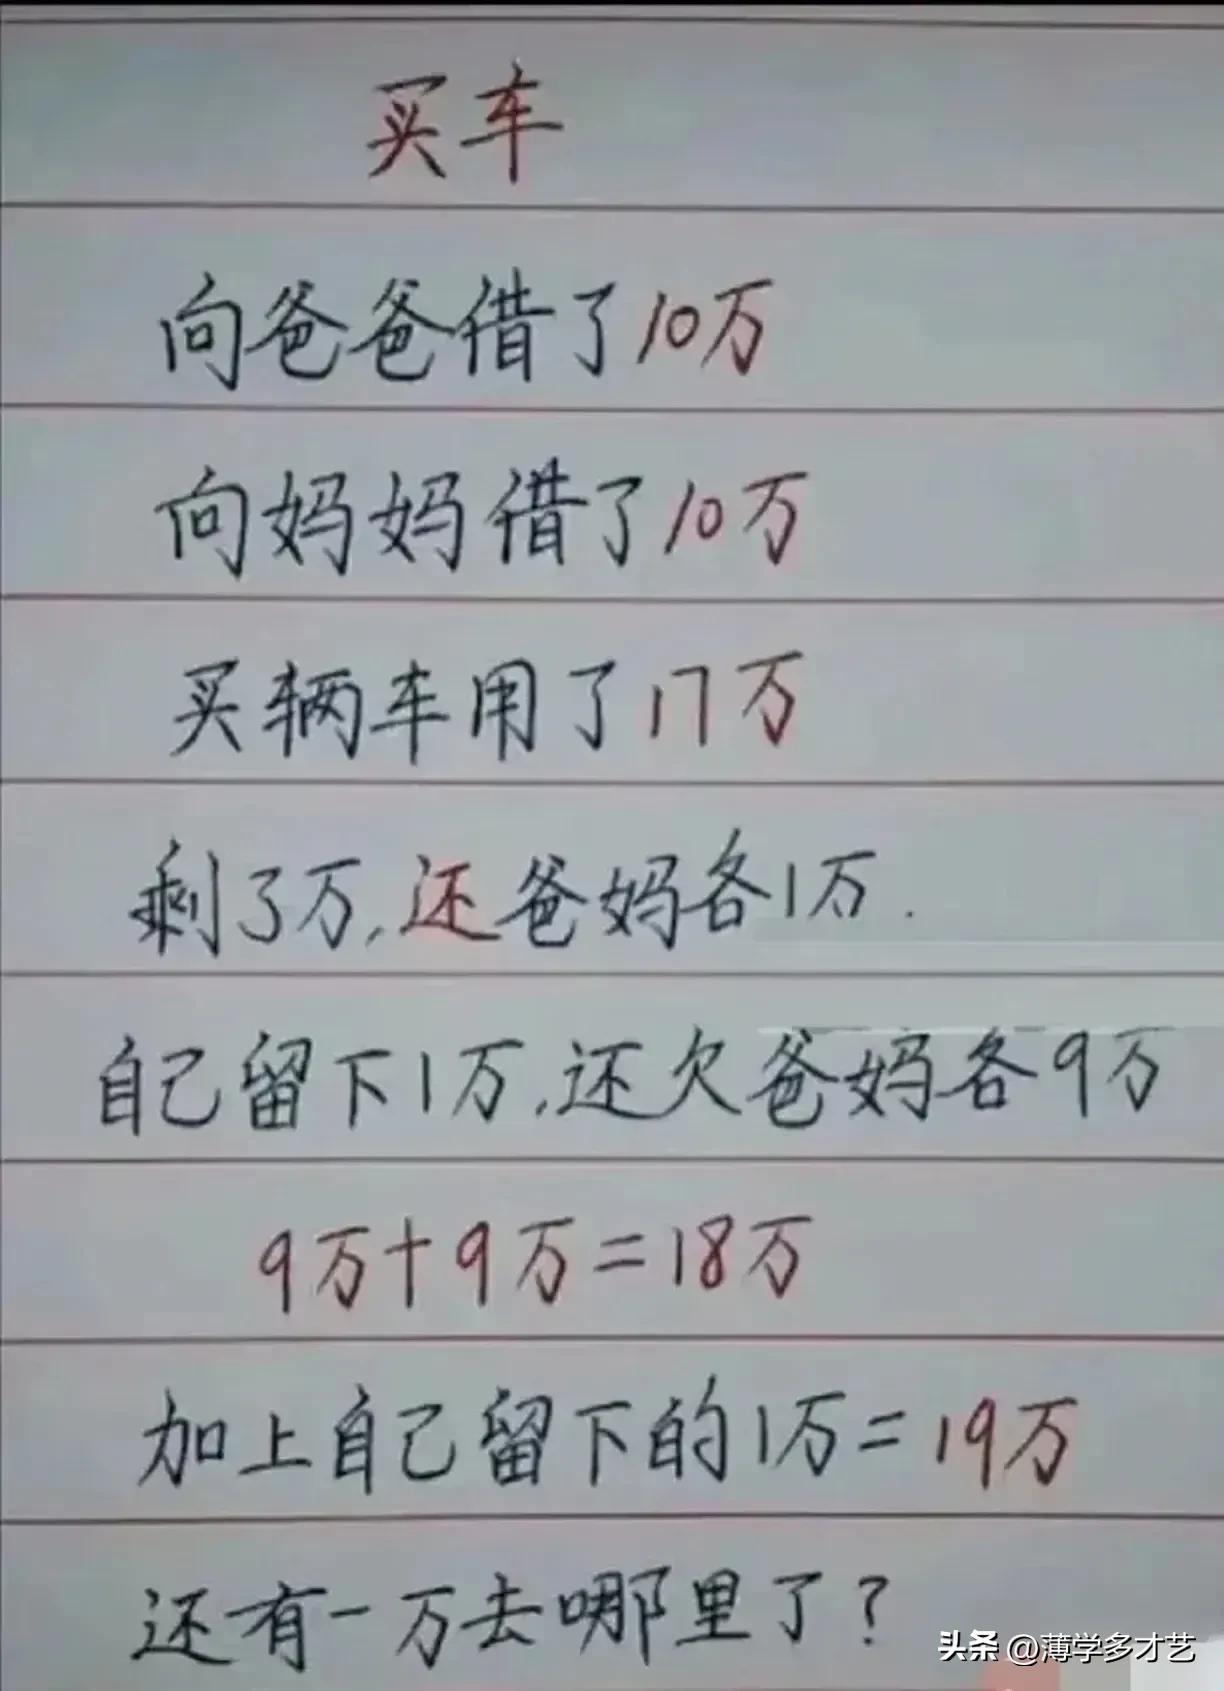 买车
向爸爸借了10万
向妈妈借了10万
买辆车用了17万
剩了万,还爸妈各1万.
自己留下1万,还欠爸妈各9万
9万+9万=18万
加上自己留下的1万=19万
还有一万去哪里了?
头条 @薄学多才艺